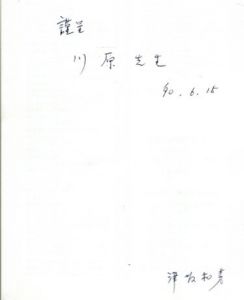 謹呈
川原先生
90.6.15
津坂和秀